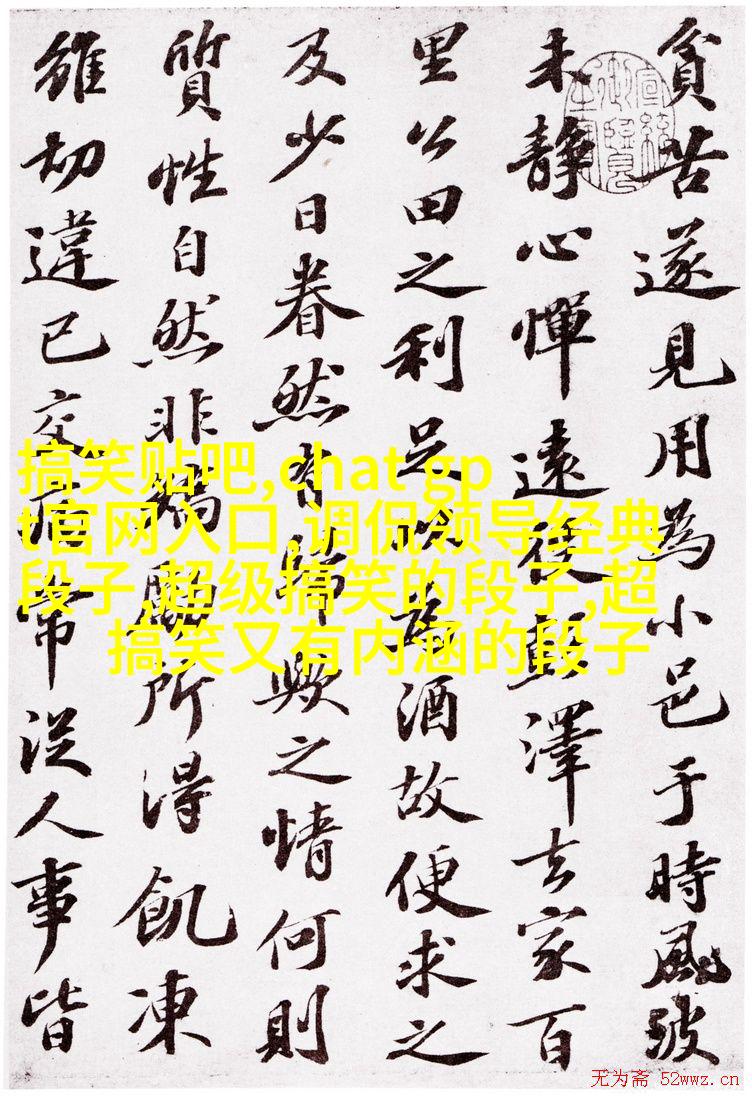 貧苦遂見用為小邑于時風波
未靜心憚遠役彭澤去家百
里公田之利足以為酒故便求之
及少日眷然有歸歟之情何則
質性自然非矯勵所得飢凍
雖切違已交病常從人事皆
搞笑贴吧,chat gp
t官网入口,调侃领导经典
段子,超级搞笑的段子,超
搞笑又有内涵的段子
无为斋 52wwz.cn